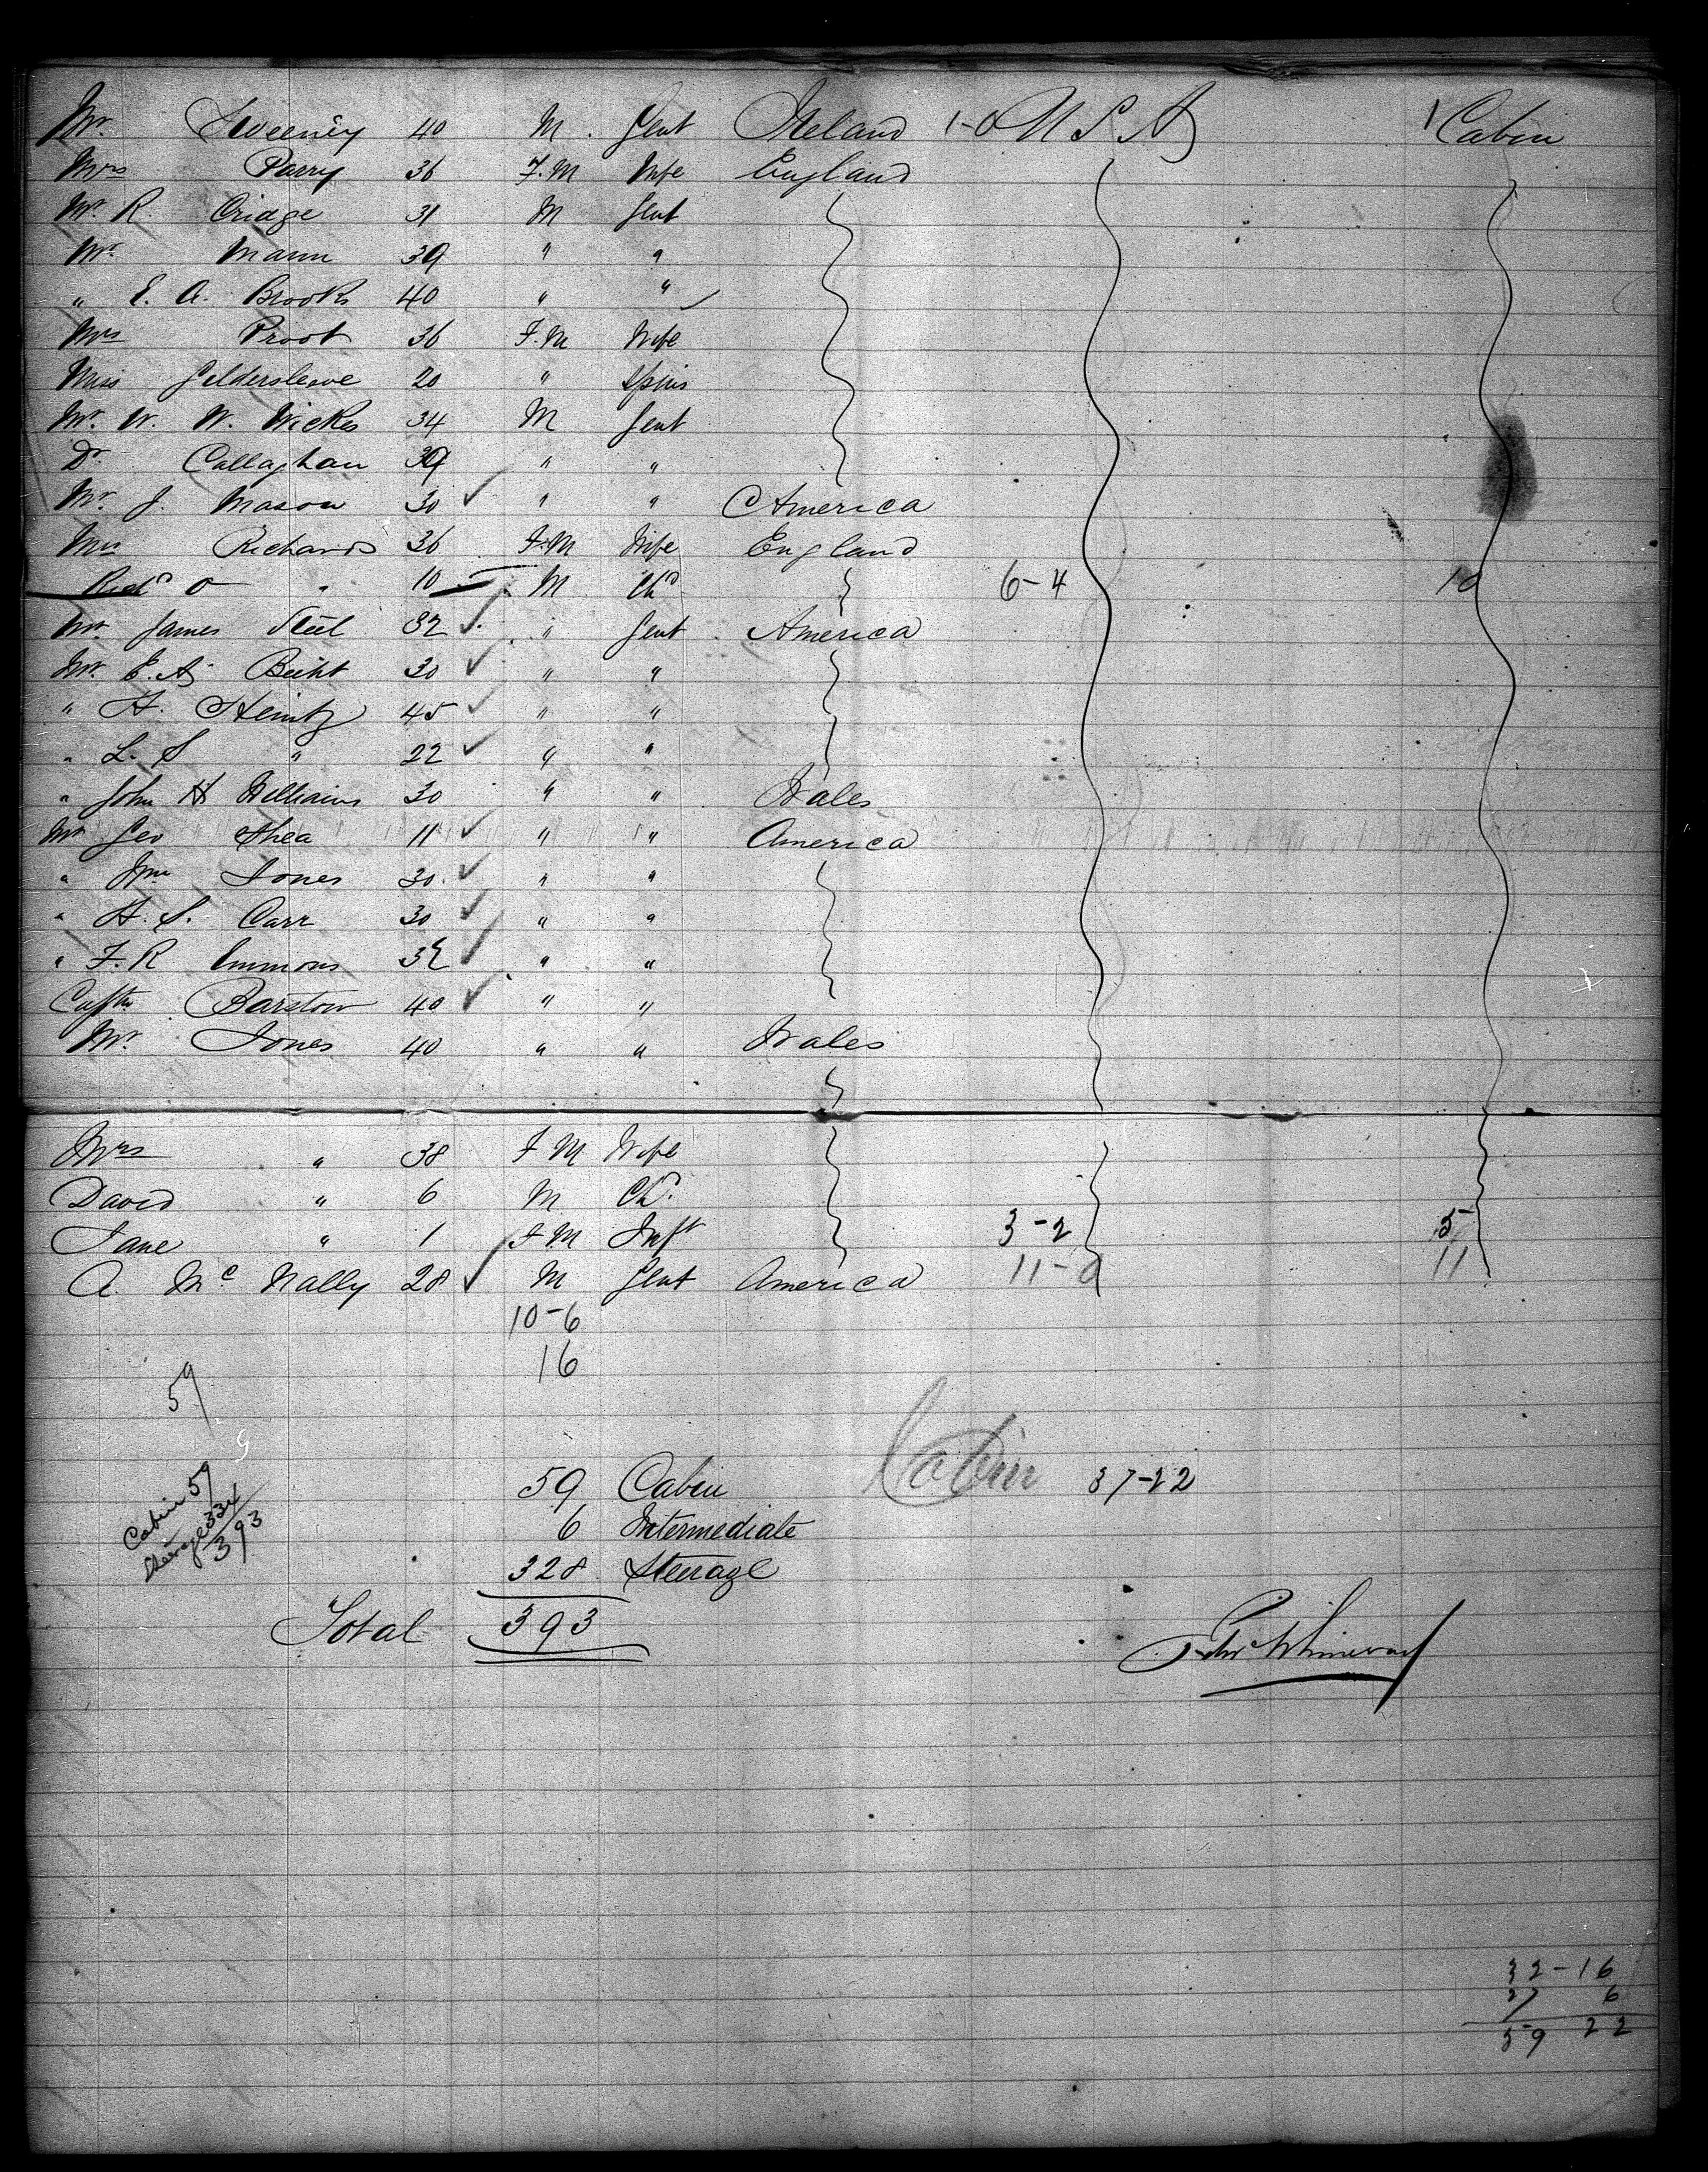 Mr. Sweeney 40 M. Gent Ireland 1-0 U S A 1 Cabin
Mrs Parry 36 F.M Wife England
Mr. R. Cridge 31 M Gent
Mr. Mann 39 " "
" E. A. Brooks 40 " "
Mrs Proot 36 F.M Wife
Miss Geldersleeve 20 " Spins
Mr. W. W. Wickes 34 M Gent
Dr. Callaghan 39 " "
Mr. J. Mason 30 ✓ " " America
Mrs Richards 36 F.M Wife England
Richd O " 10 M Chd 6-4 10
Mr. James Steel 32 ✓ " Gent America
Mr. E. A. Beiht 30 ✓ " "
" H. Heintz 45 ✓ " "
" L. S " 22 ✓ " "
" John H Williams 30 " " Wales
Mr Geo Shea 11 ✓ " " America
" Wm Jones 30. ✓ " "
" H. S. Carr 30 ✓ " "
" F. R Emmons 32 ✓ " "
Captn Barstow 40 ✓ " "
Mr. Jones 40 " " Wales
Mrs " 38 F M Wife
David " 6 M Chd.
Jane " 1 F M Inft 3-2 5
A. Mc Nally 28 ✓ M Gent America 11-0 11
10-6
16
59
59 Cabin Cabin 37-22
6 Intermediate
328 Steerage
Total 393
Cabin 59
Steerage 334
393
32-16
27 6
59 22